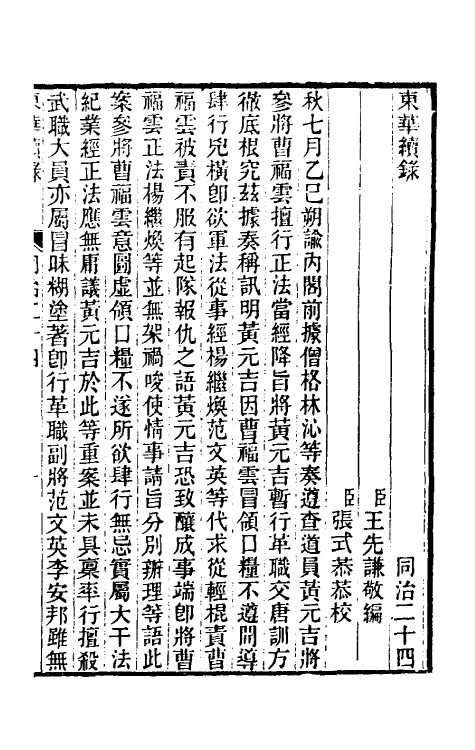 東華續錄
同治二十四
臣王先謙敬編
臣張式恭恭校
秋七月乙巳朔諭內閣前據僧格林沁等奏遵查道員黃元吉將
參將曹福雲擅行正法當經降旨將黃元吉暫行革職交唐訓方
徹底根究茲據奏稱訊明黃元吉因曹福雲冒領口糧不遵開導
肆行兇橫卽欲軍法從事經楊繼煥范文英等代求從輕棍責曹
福雲被責不服有起隊報仇之語黃元吉恐致釀成事端卽將曹
福雲正法楊繼煥等並無架禍唆使情事請旨分別辦理等語此
案參將曹福雲意圖虛領口糧不遂所欲肆行無忌實屬大干法
紀業經正法應無庸議黃元吉於此等重案並未具稟率行擅殺
武職大員亦屬冒昧糊塗著卽行革職副將范文英李安邦雖無
東華續錄
同治二十四
一